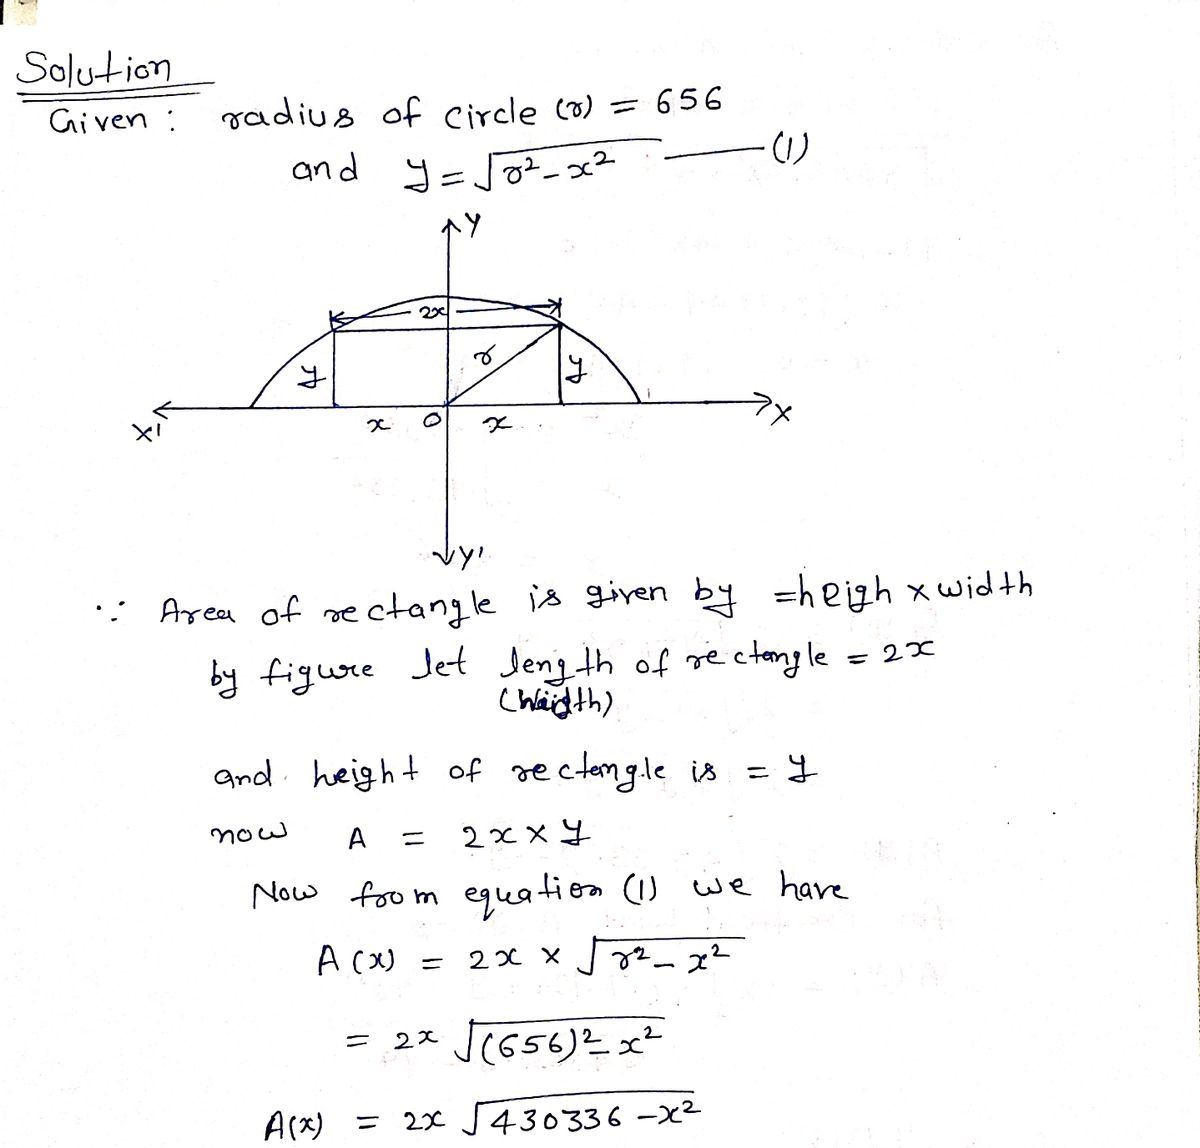 Solution
Given : radius of circle (r) = 656
and y = √r² - x² —— (1)
Y
2x
y r y
X' x O x X
Y'
∵ Area of rectangle is given by = heigh x width
by figure let length of rectangle = 2x
(Width)
and height of rectangle is = y
now A = 2x × y
Now from equation (1) we have
A(x) = 2x × √r² - x²
= 2x √(656)² - x²
A(x) = 2x √430336 - x²